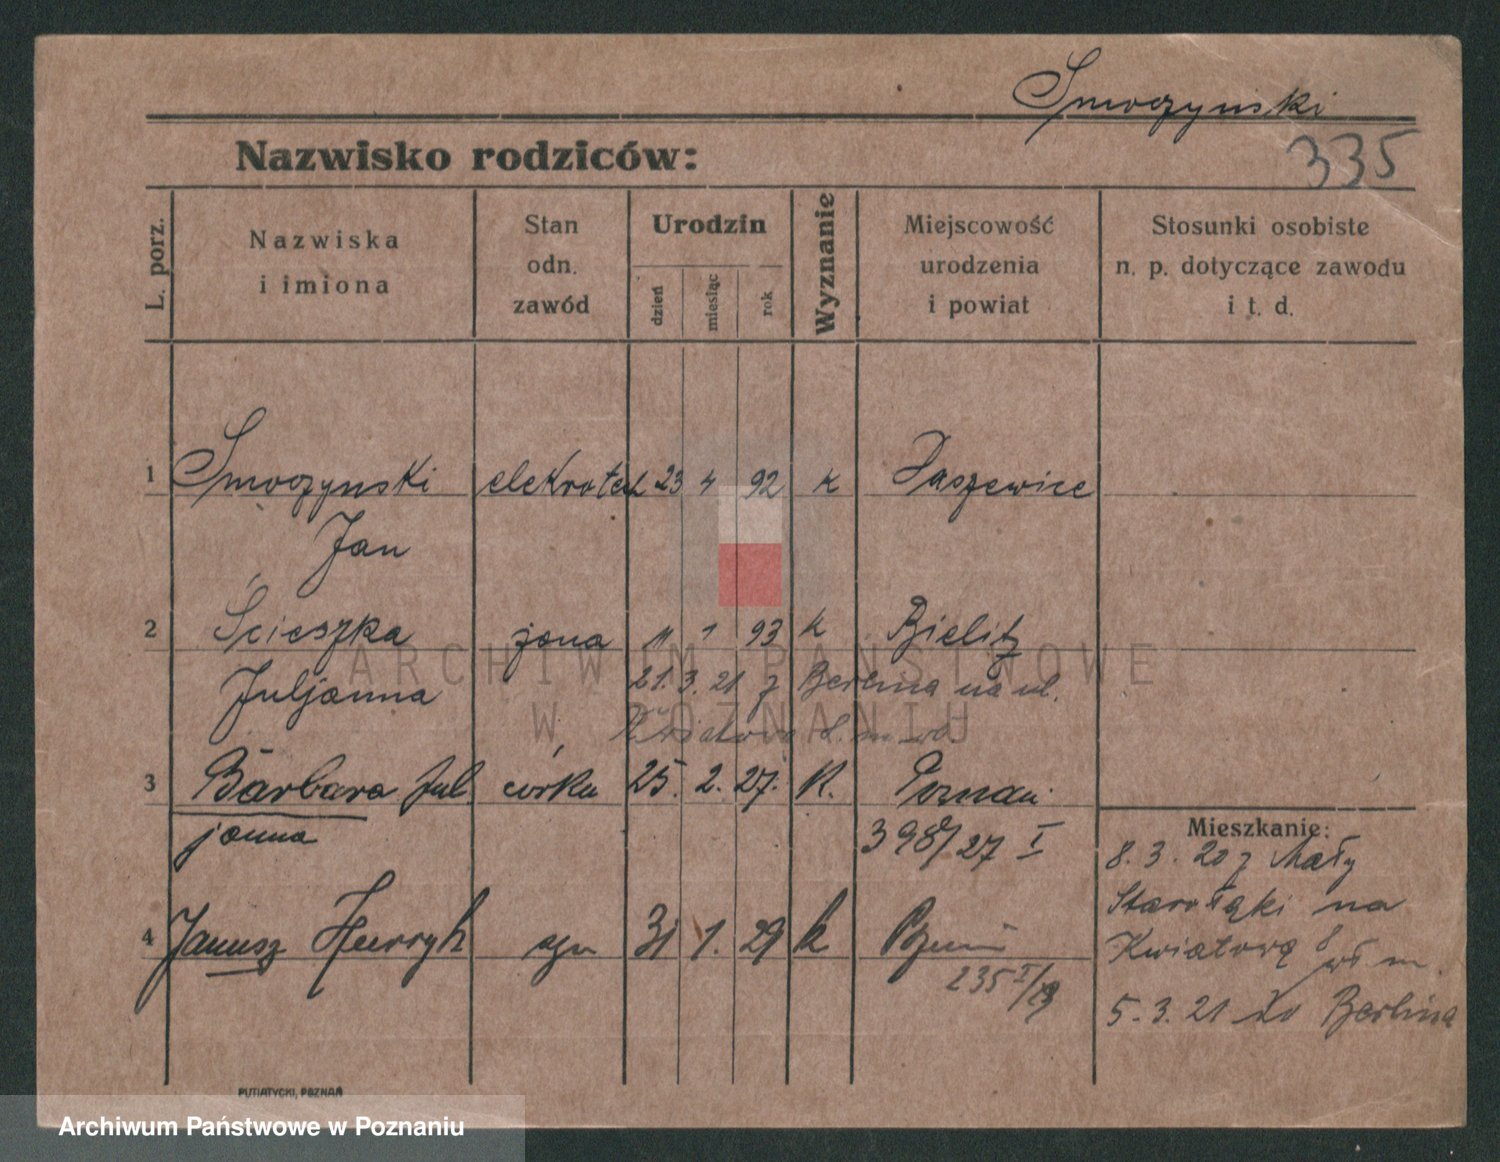 Smoczynski
Nazwisko rodziców:
335
L. porz.
Nazwiska
i imiona
Stan
odn.
zawód
Urodzin
dzień
miesiąc
rok
Wyznanie
Miejscowość
urodzenia
i powiat
Stosunki osobiste
n. p. dotyczące zawodu
i t. d.
1 Smoczynski elektrotech 23 4 92 k Daszewice
Jan
2 Ścieszka żona 11 1 93 k Bielitz
Juljanna 21.3.21 z Berlina na ul.
3 Barbara Jul córka 25. 2. 27. K. Poznań
janna 398/27 I
4 Janusz Henryk syn 31 1. 29 k
235 I/29
Mieszkanie:
8.3.20 z Mały
Starołęki na
Kwiatową 8
wł. m.
5.3.21 do Berlina
PUTIATYCKI, POZNAŃ
ARCHIWUM PAŃSTWOWE
W POZNANIU
Archiwum Państwowe w Poznaniu